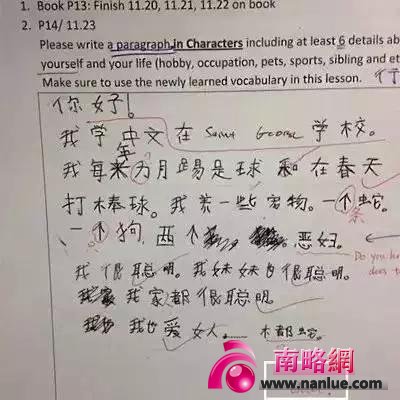 1. Book P13: Finish 11.20, 11.21, 11.22 on book
2. P14/ 11.23
Please write a paragraph In Characters including at least 6 details abo
yourself and your life (hobby, occupation, pets, sports, sibling and et
Make sure to use the newly learned vocabulary in this lesson.
你好!
我学中文在 Saint George 学校。
年
我每个月踢足球和在春天
打棒球。我养一些宠物。一个蛇。
条
一个狗,两个 恶妇。
Do you h
does t
我很聪明。我妹妹也很聪明。
我家都很聪明。
我也爱女人
南略網
www.nanlue.com